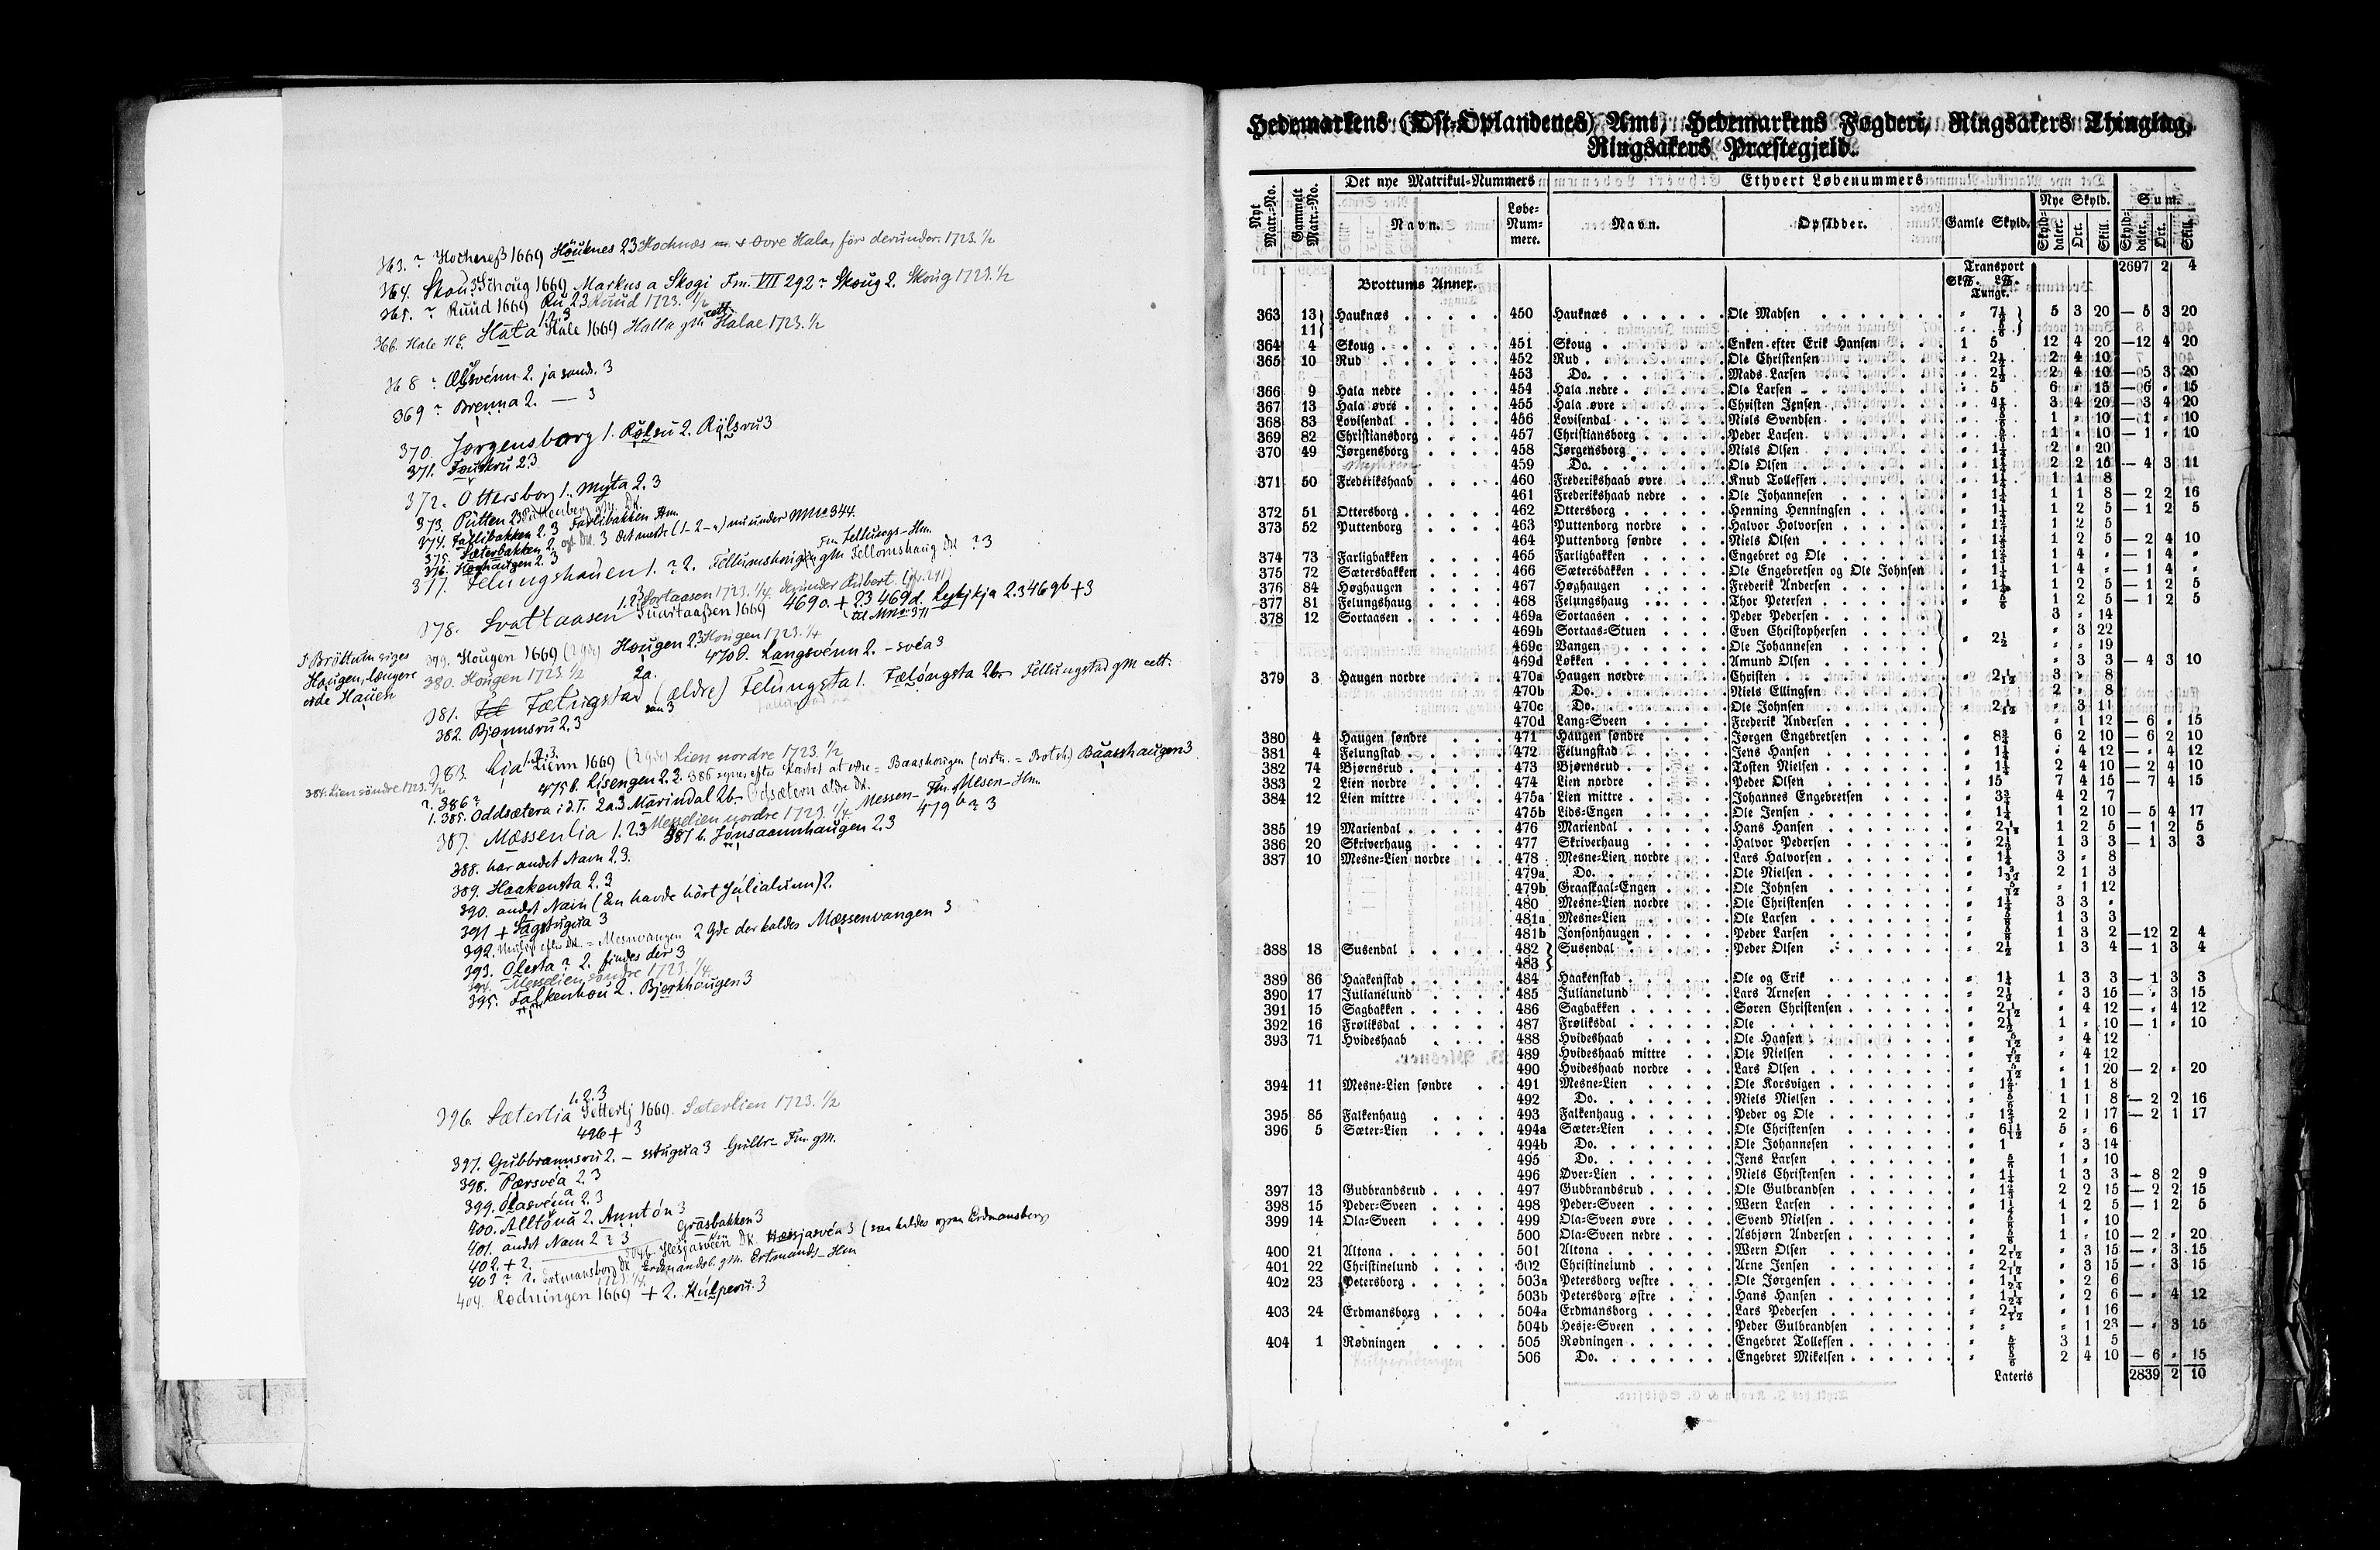 363. ? Hochneß 1669 Höuknes 2 3 Hochnæs m. + Øvre Hala, för derunder. 1723. 1/2
364. Skou 3 Schoug 1669 Markus a Skogi Fm. VII 292 ? Skoug 2. Skoug 1723. 1/2
365. ? Ruud 1669 Ru 2.3 Ruud 1723. 1/2
1.2.3
366. Hale Hata Hale 1669 Halla gM Halae 1723. 1/2
368 ? Ølsvénn 2. ja sand. 3
369 ? Brenna 2. — 3
370. Jørgensborg 1. Rølsu 2. Rylsru 3
371. Fouskru 2 3
372. Ottersborg 1. Myta 2. 3
373. Pütten 2 3 Puttenberg gM. DK.
374. Fallibakken 2. 3 Farlibakken Hm.
375. Sæterbakken 2. 3 Det meste (1-2-) nu under MNo 344.
376. Høghaugen 2. 3
377. Felungshauen 1. ? 2. Fellumshougen gM Fellomshaug DK ? 3
378. Svattaasen 1. 2 3 Sortaasen 1723. 1/4. derunder Rubert. (jfr. 291)
Suartaaßen 1669 469a. + 2 3 469d. Leykjkja 2.3 469b + 3
I Brøttum siges
Haugen, længere
øde Hauen
379. Hougen 1669 (2 gde) Hougen 2 3 Hougen 1723. 1/4
380. Hougen 1723. 1/2 470d. Langsvénn 2. - svéa 3
381. Fælungstad (ældre) Felungsta 1. Fælóngsta 2b Fellungstad gM cett.
382. Bjønnsru 2. 3
383. Lia 1. 2. 3. Lienn 1669 (2 gde) Lien nordre 1723. 1/2
384. Lien söndre 1723. 1/2
475b. Lisengen 2. 3.
? 386 ?
1. 385. Oddsætera i d. T. 2a. 3 Marindal 2b Odsætern ældre DK.
387. Mæssenlia 1. 2. 3 Messelien nordre 1723. 1/4 Messen- Fm. Mesen- Hm.
387 b. Jonsaannhaugen 2. 3 479 b ? 3
388. har andet Navn 2. 3.
389. Haakensta 2. 3
390. andet Navn (En havde hört Júlialunn) 2.
391 + Sagstugua 3
392. = Mesnvangen 2 Gde der kaldes Mæssenvangen 3
393. Olesta ? 2. findes der 3
394. Messelien søndre 1723. 1/4
395. Falkenhou 2. Bjørkhougen 3
396. Sæterlia 1. 2. 3 Setterlj 1669. Sæterlien 1723. 1/2
496 + 3
397. Gubbrannsru 2. - sstugua 3 Gullbr- Fm. gM.
398. Pærsvéa 2. 3
399. Olasvénn 2. 3
400. Alltona 2. Anntón 3
401. andet Navn 2 ? 3 Gräsbakken 3
402. + 2.
504b. Hesjasveen DK. Hæsjasvéa 3 (saa kaldes ogsaa Erdmansberg)
403 ? 2. Ertmansborg DK Erdmandsb. gM. Ertmands- Hm
404. Rødningen 1669 + 2. Kúlperu. 3
Hedemarkens (Øst-Oplandenes) Amt, Hedemarkens Fogderi, Ringsakers Thinglag,
Ringsakers Præstegjeld.
Nyt Matr.-No. Gammelt Matr.-No. Det nye Matrikul-Nummers Ethvert Løbenummers
Navn. Løbe-Nummere. Navn. Opsidder. Gamle Skyld. Nye Skyld. Sum.
Skylddaler. Ort. Skill. Skylddaler. Ort. Skill.
Transport 2697 2 4
Brottums Annex. Sk℔. L℔. Tunge.
363 13 Hauknæs 450 Hauknæs Ole Madsen " 7½ 5 3 20 — 5 3 20
11 " 5/6
364 4 Skoug 451 Skoug Enken efter Erik Hansen 1 5 12 4 20 — 12 4 20
365 10 Rud 452 Rud Ole Christensen " 2½ 2 4 10
453 Do. Mads Larsen " 2½ 2 4 10 — 5 3 20
366 9 Hala nedre 454 Hala nedre Ole Larsen " 5 6 " 15 — 6 " 15
367 13 Hala øvre 455 Hala øvre Christen Jensen " 4 1/6 3 4 20 — 3 4 20
368 83 Lovisendal 456 Lovisendal Niels Svendsen " 5/6 1 " 10 — 1 " 10
369 82 Christiansborg 457 Christiansborg Peder Larsen " 5/6 1 " 10 — 1 " 10
370 49 Jørgensborg 458 Jørgensborg Niels Olsen " 1¼ 2 " 20
459 Do. Ole Olsen " 1¼ 2 2 15 — 4 3 11
371 50 Frederikshaab 460 Frederikshaab øvre Knud Tollefsen " 1¼ 1 1 8
461 Frederikshaab nedre Ole Johannesen " 1¼ 1 1 8 — 2 2 16
372 51 Ottersborg 462 Ottersborg Henning Henningsen " 1¼ 1 2 5 — 1 2 5
373 52 Puttenborg 463 Puttenborg nordre Halvor Holvorsen " 1¼ 1 2 5
464 Puttenborg søndre Niels Olsen " 1¼ 1 2 5 — 2 4 10
374 73 Farligbakken 465 Farligbakken Engebret og Ole " 1¼ 1 4 " — 1 4 "
375 72 Sætersbakken 466 Sætersbakken Ole Engebretsen og Ole Johnsen " 1¼ 1 4 " — 1 4 "
376 84 Høghaugen 467 Høghaugen Frederik Andersen " 1¼ 1 2 5 — 1 2 5
377 81 Felungshaug 468 Felungshaug Thor Petersen " 5/6 1 2 5 — 1 2 5
378 12 Sortaasen 469a Sortaasen Peder Pedersen 3 " 14
469b Sortaas-Stuen Even Christophersen " 2½ " 3 22
469c Vangen Ole Johannesen " " 19
469d Løkken Amund Olsen " 3 3 — 4 3 10
379 3 Haugen nordre 470a Haugen nordre Christen " 2 1/12 3 " 8
470b Do. Niels Ellingsen 2 " 8
470c Do. Ole Johnsen " 2 1/12 " 3 11
470d Lang-Sveen Frederik Andersen " 1 12 — 6 " 15
380 4 Haugen søndre 471 Haugen søndre Jørgen Engebretsen " 8¾ 6 2 10 — 6 2 10
381 4 Felungstad 472 Felungstad Jens Hansen " 1¼ " 4 12 — " 4 12
382 74 Bjørnsrud 473 Bjørnsrud Tosten Nielsen " 1¼ 2 4 10 — 2 4 10
383 2 Lien nordre 474 Lien nordre Peder Olsen " 15 7 4 15 — 7 4 15
384 12 Lien mittre 475a Lien mittre Johannes Engebretsen " 3¾ 4 2 7
475b Lids-Engen Ole Jensen " 1¼ 1 2 10 — 5 4 17
385 19 Mariendal 476 Mariendal Hans Hansen " 2 1/12 1 2 5 — 1 2 5
386 20 Skriverhaug 477 Skriverhaug Halvor Pedersen " 2½ 1 3 3 — 1 3 3
387 10 Mesne-Lien nordre 478 Mesne-Lien nordre Lars Halvorsen " 1¼ 3 " 8
479a Do. Ole Nielsen " 2 1 3
479b Graaskaal-Engen Ole Johnsen " 5/12 " 1 12
480 Mesne-Lien nordre Ole Christensen " 1¼ 3 3 "
481a Mesne-Lien Ole Larsen " 5/8 1 3 3
481b Jonsonhaugen Peder Larsen " 5/8 1 3 2 — 12 2 4
388 18 Susendal 482 Susendal Peder Olsen " 2½ 1 3 4 — 1 3 4
483
389 86 Haakenstad 484 Haakenstad Ole og Erik " 1¼ 1 3 3 — 1 3 3
390 17 Julianelund 485 Julianelund Lars Arnesen " 2½ " 3 15 — " 3 15
391 15 Sagbakken 486 Sagbakken Søren Christensen " 2 1/12 " 4 12 — " 4 12
392 16 Froliksdal 487 Froliksdal Ole " 2½ 1 " 10 — 1 " 10
393 71 Hvideshaab 488 Hvideshaab Ole Hansen " 5/12 " 4 12
489 Hvideshaab mittre Ole Nielsen " 5/12 " 4 12
490 Hvideshaab nordre Lars Olsen " 5/12 " 1 20 — 2 " 20
394 11 Mesne-Lien søndre 491 Mesne-Lien Ole Korsvigen " 1⅔ 1 1 8
492 Do. Niels Nielsen " 5/6 1 1 8 — 2 2 16
395 85 Falkenhaug 493 Falkenhaug Peder og Ole " 1⅔ 2 1 17 — 2 1 17
396 5 Sæter-Lien 494a Sæter-Lien Ole Christensen " 6 11/12 5 " 6
494b Do. Ole Johannesen " 1 " 3 14
495 Do. Jens Larsen " 5/6 1 " 10
496 Over-Lien Niels Christensen " 1¼ 1 3 3 — 8 2 9
397 13 Gudbrandsrud 497 Gudbrandsrud Ole Gulbrandsen " 1⅔ 2 2 15 — 2 2 15
398 15 Peder-Sveen 498 Peder-Sveen Wern Larsen " 1¼ 1 2 5 — 1 2 5
399 14 Ola-Sveen 499 Ola-Sveen øvre Svend Nielsen " 5/8 1 " 10
500 Ola-Sveen nedre Asbjørn Andersen " 5/8 1 " 10 — 2 " 20
400 21 Altona 501 Altona Wern Olsen " 2 1/12 " 3 15 — " 3 15
401 22 Christinelund 502 Christinelund Arne Jensen " 2 1/12 " 3 15 — " 3 15
402 23 Petersborg 503a Petersborg vestre Ole Jørgensen " 1 1/24 " 2 6
503b Petersborg østre Hans Hansen " 1 1/24 " 2 6 — " 4 12
403 24 Erdmansborg 504a Erdmansborg Lars Pedersen " 2 1/12 " 1 16
504b Hesje-Sveen Peder Gulbrandsen " " " 1 23 — " 3 15
404 1 Rødningen 505 Rødningen Engebret Tollefsen " 5/6 3 1 5
Kulperudengen 506 Do. Engebret Mikelsen " 5/6 2 4 10 — 6 " 15
Lateris 2839 2 10